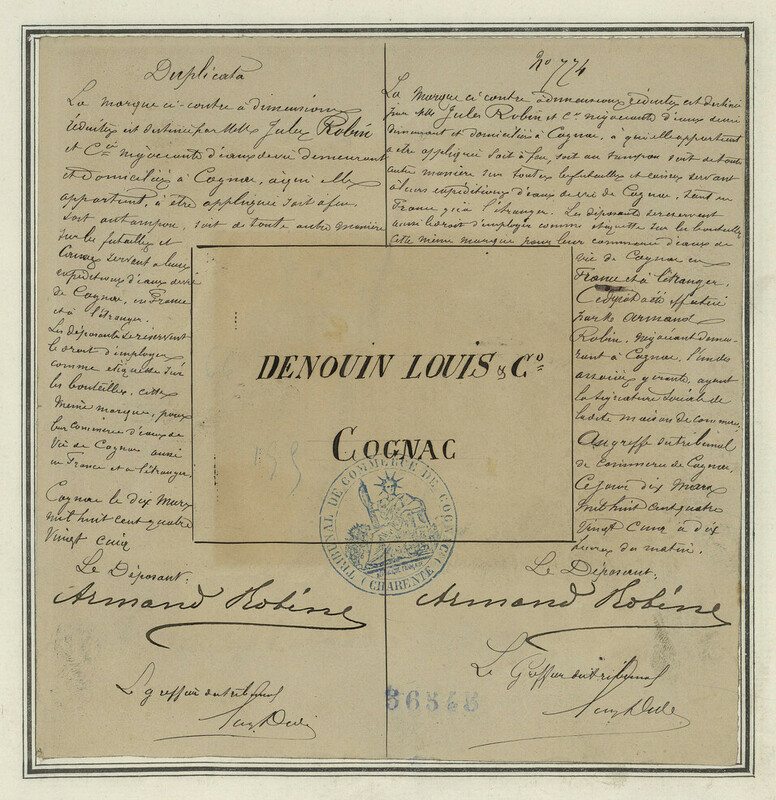 Duplicata
La marque ci-contre à dimensions
réduites est destinée par MMrs Jules Robin
et Cie négociants d'eaux de vie demeurant
et domiciliés à Cognac, à qui elle
appartient, à être appliquée soit à feu,
soit au tampon, soit de toute autre manière
sur les futailles et
caisses servant à leurs
expéditions d'eaux de vie
de Cognac, en France
et à l'étranger.
Les déposants se réservent
le droit d'employer
comme étiquette sur
les bouteilles, cette
même marque, pour
leur commerce d'eaux de
vie de Cognac aussi
en France et à l'étranger.
Cognac le dix Mars
mil huit cent quatre
vingt cinq
Le Déposant:
Armand Robin
Le greffier du tribunal
No 774
La Marque ci contre à dimensions réduites est destinée
par MM Jules Robin et Cie négociants d'eaux de vie
demeurant et domiciliés à Cognac, à qui elle appartient
à être appliquée soit à feu, soit au tampon soit de toute
autre manière sur toutes les futailles et caisses servant
à leurs expéditions d'eaux de vie de Cognac, tant en
France qu'à l'étranger. Les déposants se réservent
aussi le droit d'employer comme étiquette sur les bouteilles
cette même marque pour leur commerce d'eaux de
vie de Cognac en
France et à l'étranger.
Ce dépôt a été effectué
par Mr Armand
Robin, négociant demeu-
rant à Cognac, l'un des
associés gérants, ayant
la signature sociale de
ladite maison de commerce,
Au greffe du tribunal
de Commerce de Cognac,
Ce jour dix Mars
mil huit cent quatre
vingt cinq à dix
heures du matin.
Le Déposant:
Armand Robin
Le Greffier du tribunal
DENOUIN LOUIS & Co
COGNAC
TRIBUNAL DE COMMERCE DE COGNAC (CHARENTE)